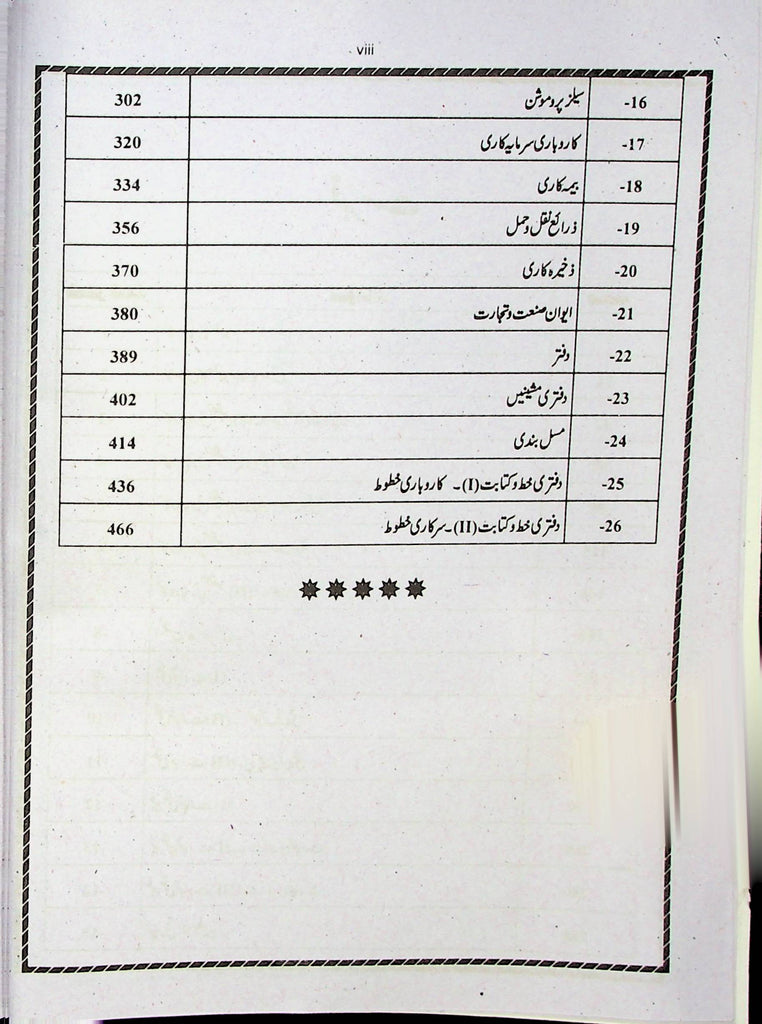 viii
-16 سیلز پروموشن 302
-17 کاروباری سرمایہ کاری 320
-18 بیمہ کاری 334
-19 ذرائع نقل و حمل 356
-20 ذخیرہ کاری 370
-21 ایوان صنعت و تجارت 380
-22 دفتر 389
-23 دفتری مشینیں 402
-24 مسل بندی 414
-25 دفتری خط و کتابت (I)۔ کاروباری خطوط 436
-26 دفتری خط و کتابت (II)۔ سرکاری خطوط 466